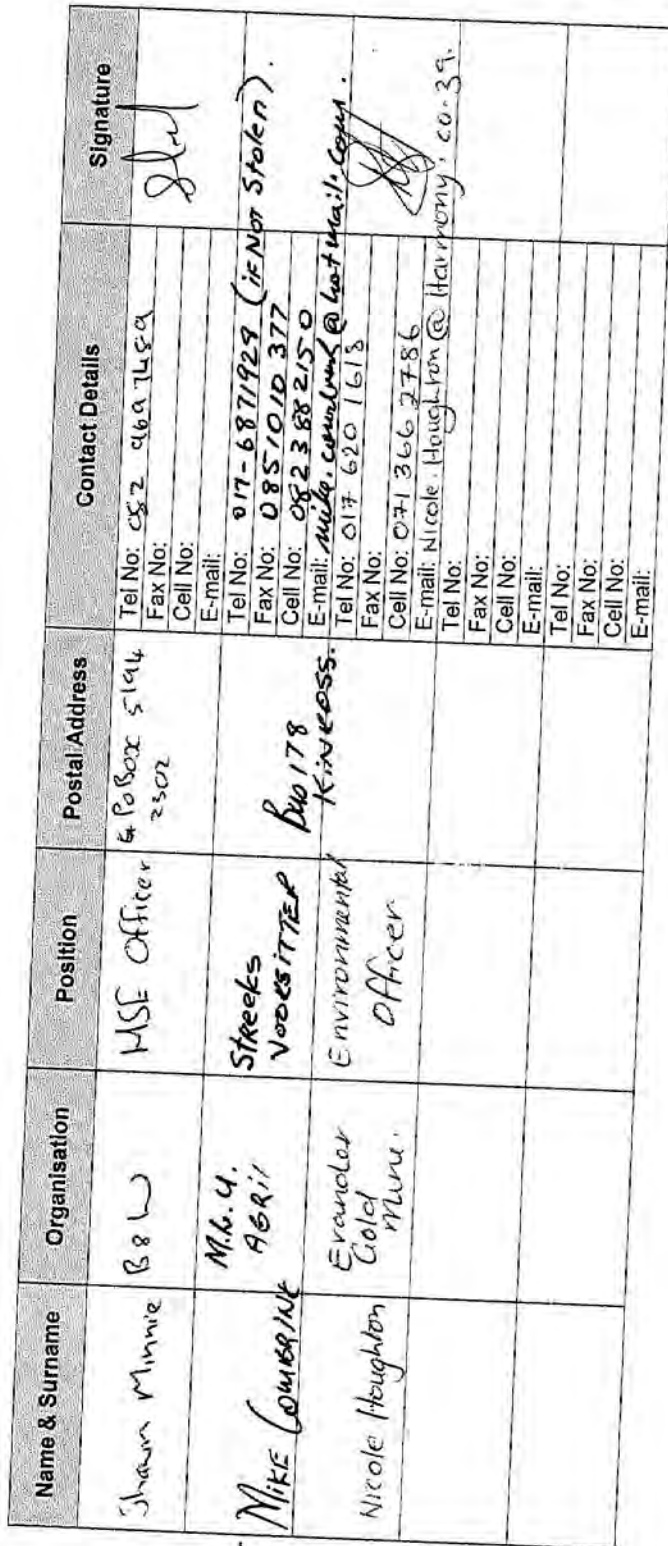 Name & Surname
Organisation
Position
Postal Address
Contact Details
Signature
Shawn Minnie
B&W
HSE Officer
PoBox 5194
2302
Tel No: 082 9697489
Fax No:
Cell No:
E-mail:
MIKE COMBRINK
M.L.U.
AGRI
Streeks
VOORSITTER
Bus 178
KINROSS.
Tel No: 017-6871929 (IF NOT Stolen).
Fax No: 0851010 377
Cell No: 082 388 2150
E-mail: mike. @ hotmail.com.
Nicole Houghton
Evander
Gold
Mine.
Environmental
Officer
Tel No: 017 620 1618
Fax No:
Cell No: 071 366 2786
E-mail: Nicole.Houghton@Harmony.co.za.
Tel No:
Fax No:
Cell No:
E-mail:
Tel No:
Fax No:
Cell No:
E-mail: